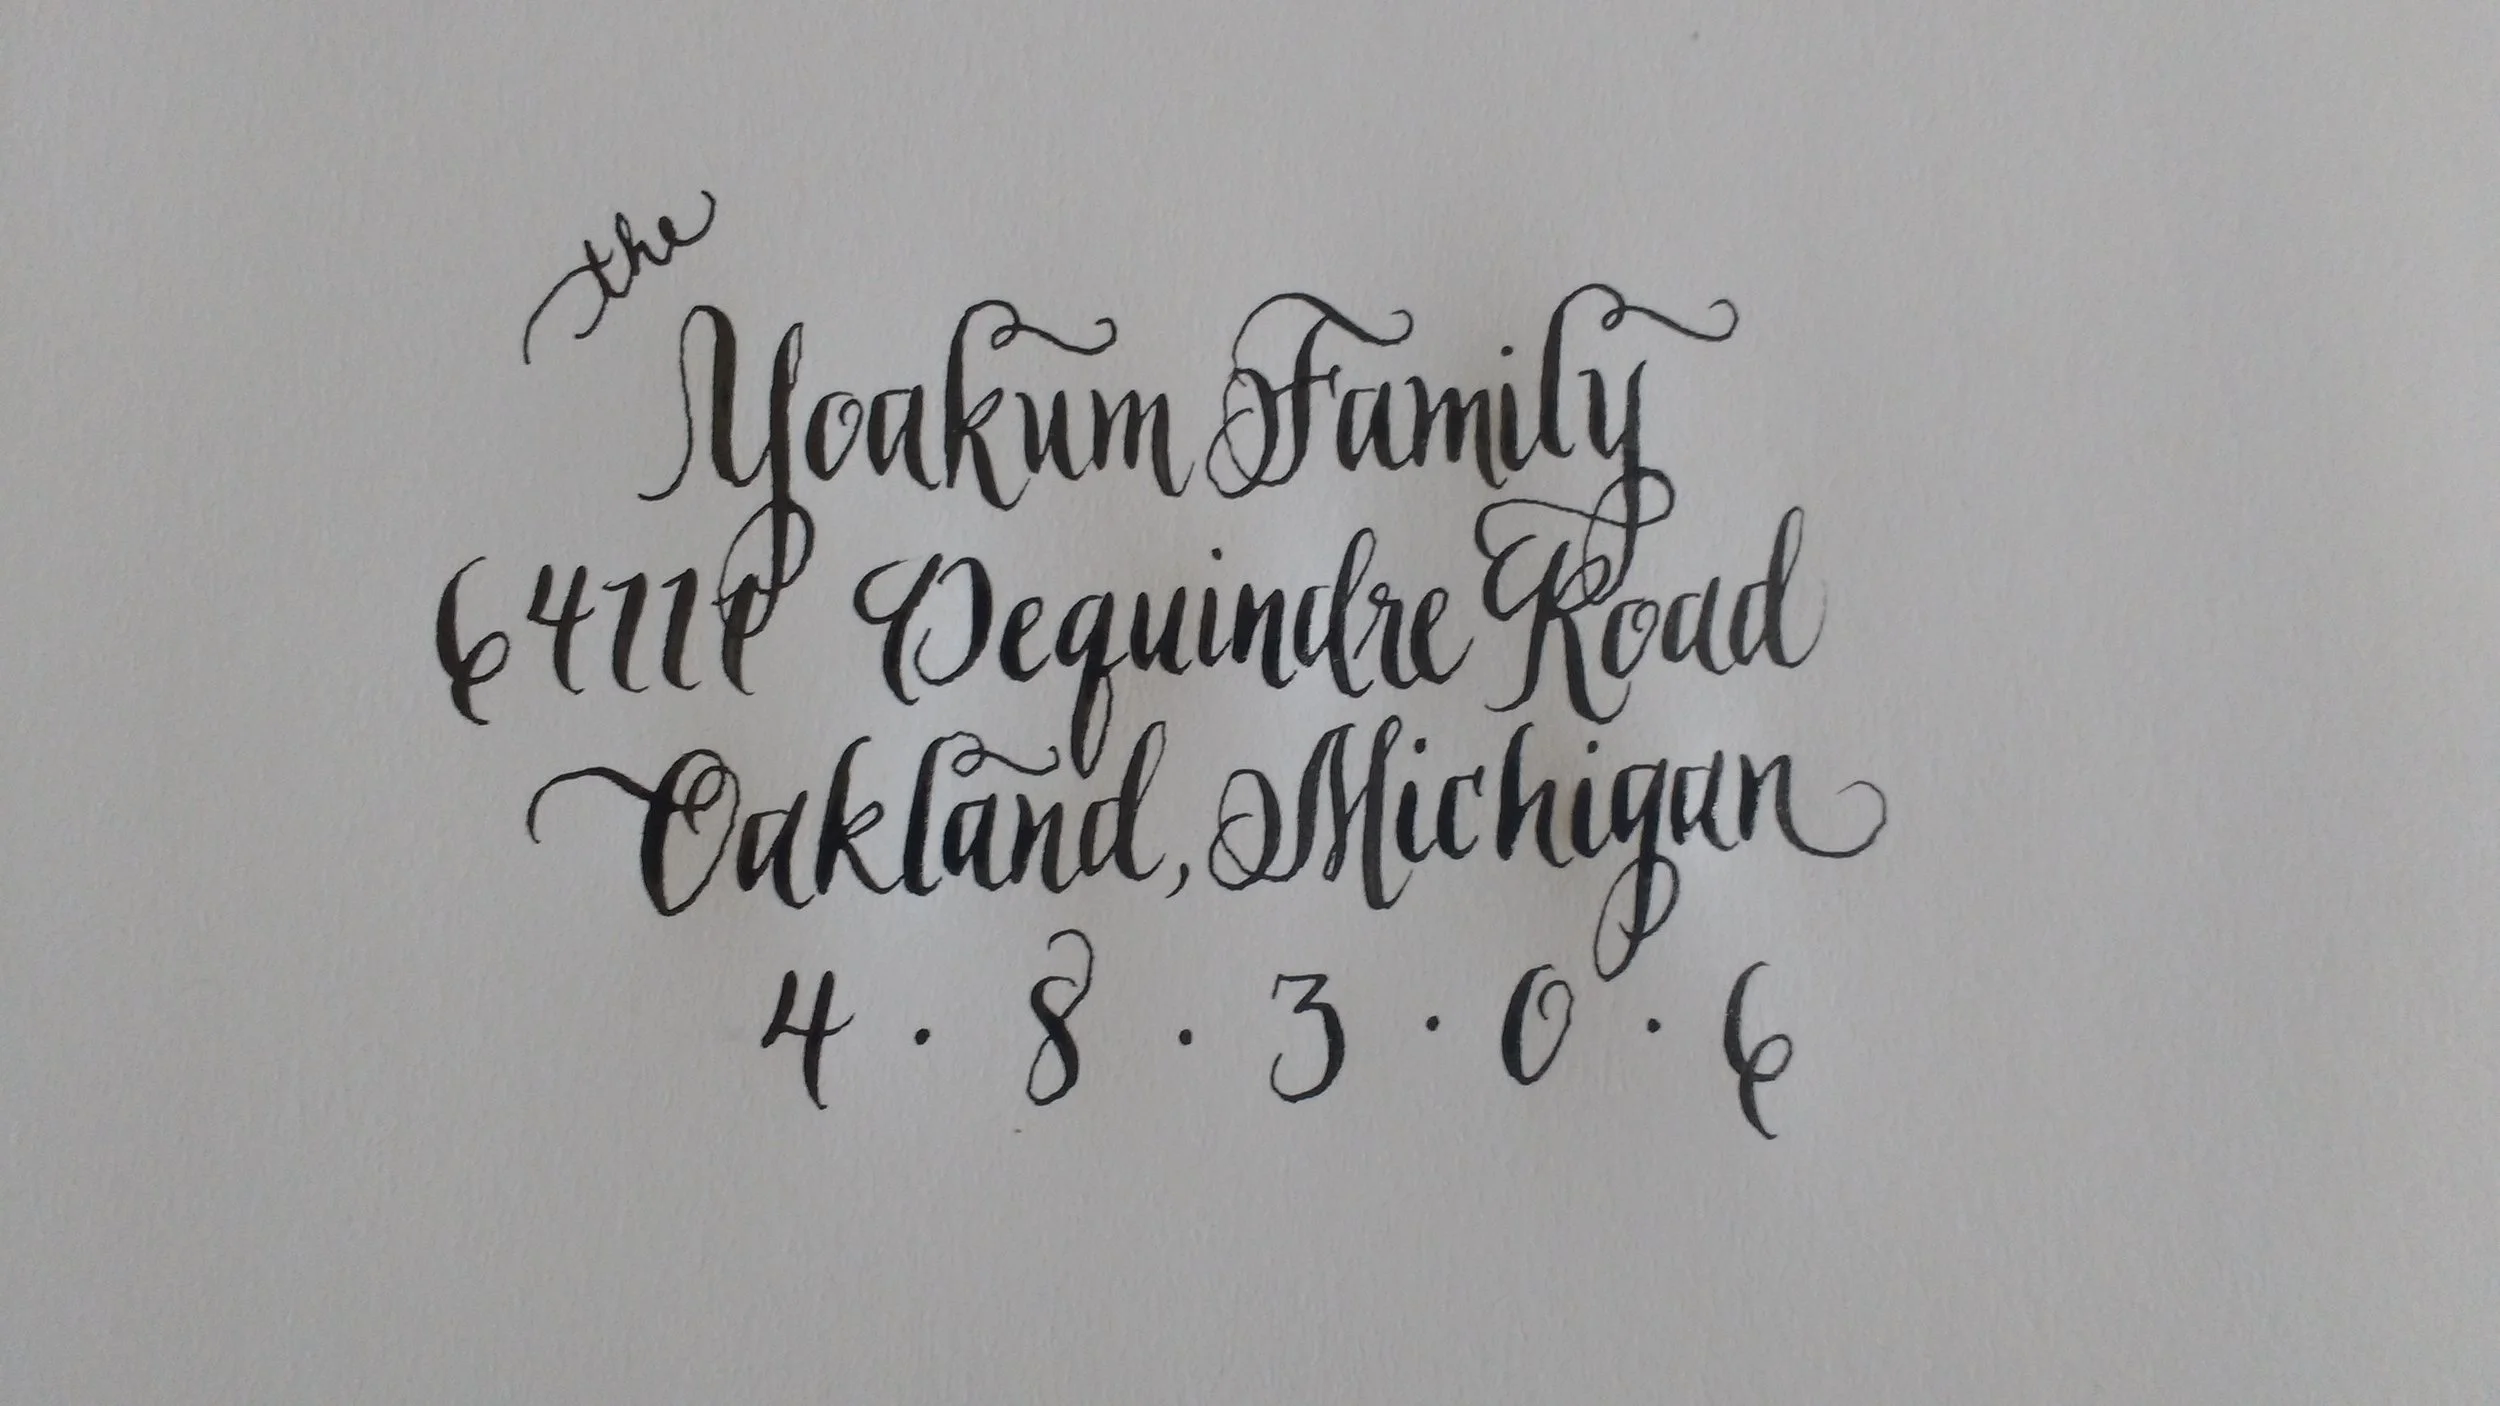 the
Yoakum Family
Dequindre Road
Oakland, Michigan
4 · 8 · 3 · 0 · 6